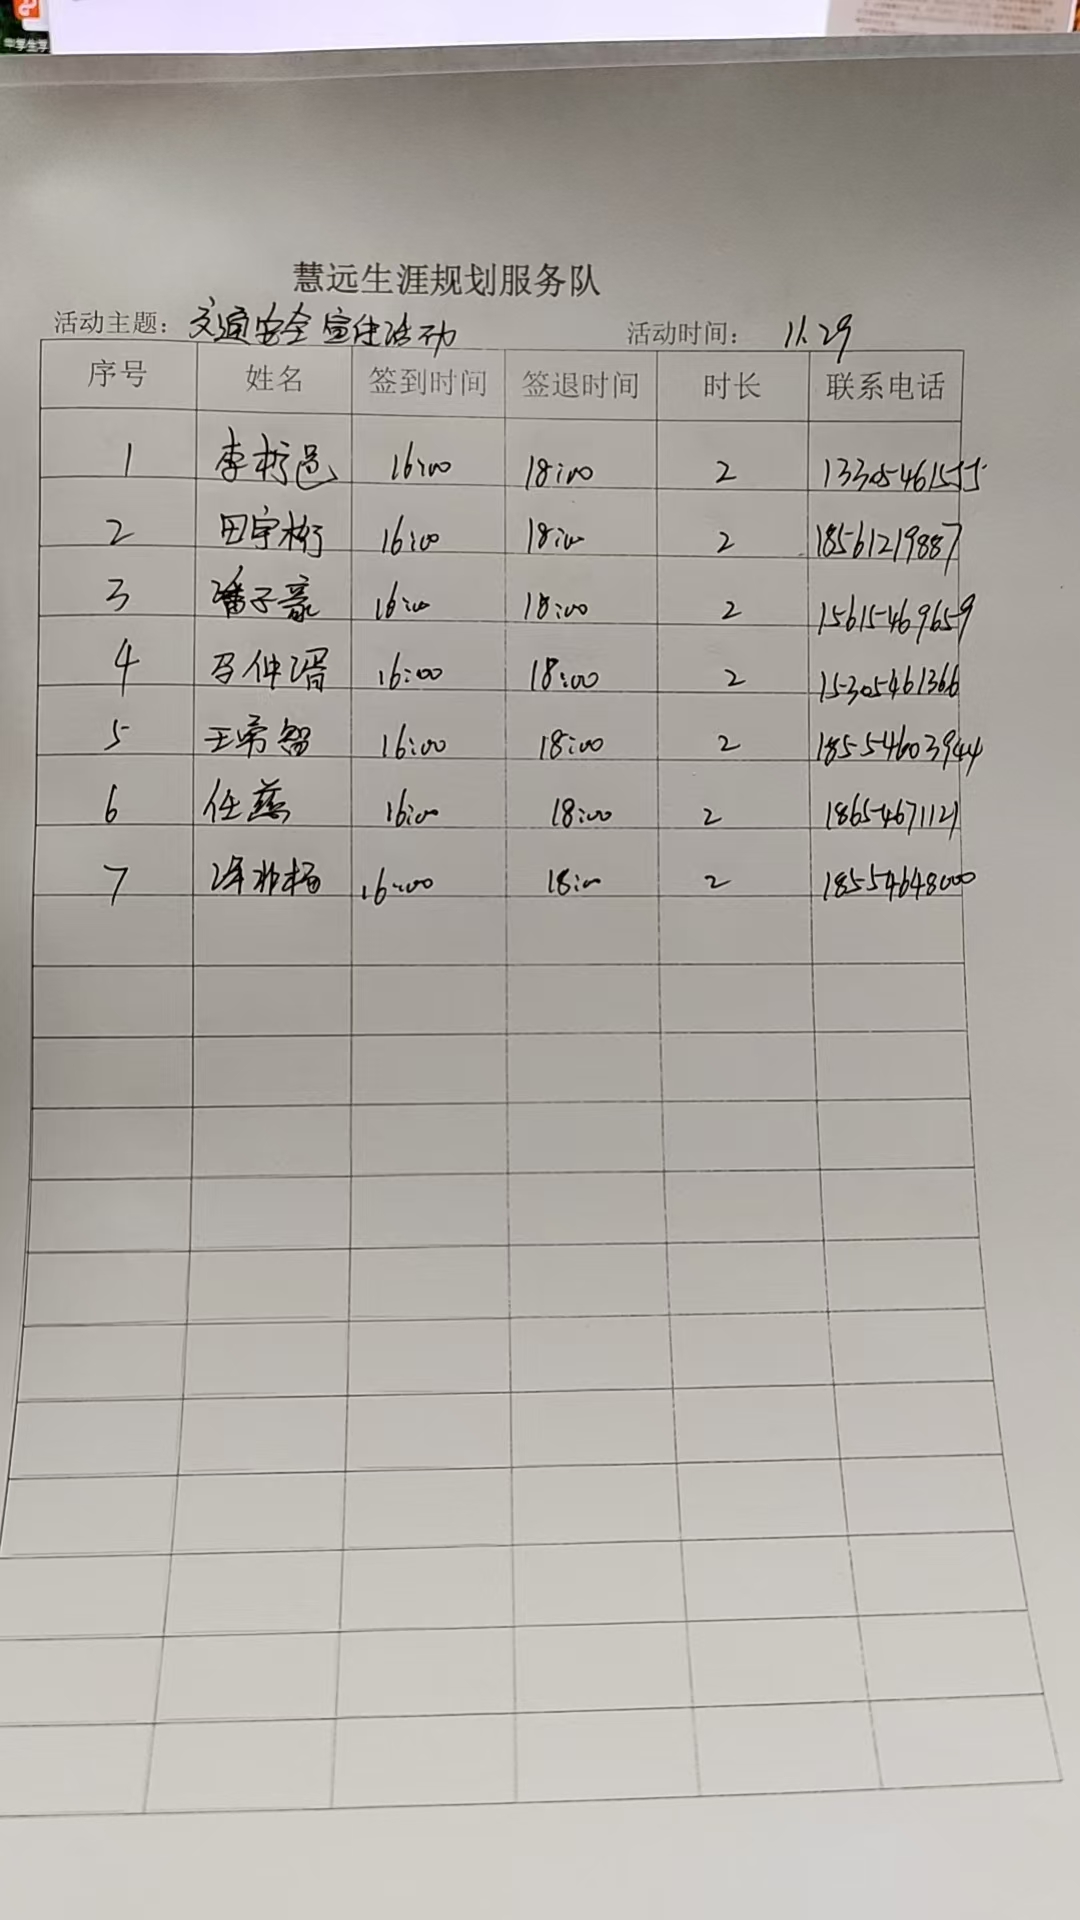 中学生学
慧远生涯规划服务队
活动主题: 交通安全宣传活动 活动时间: 11.29
序号 姓名 签到时间 签退时间 时长 联系电话
1 李 16:00 18:00 2 13305461555
2 田宇桁 16:00 18:00 2 18561219887
3 潘子豪 16:00 18:00 2 15615469659
4 仲 16:00 18:00 2 15305461366
5 王希智 16:00 18:00 2 18554603944
6 任燕 16:00 18:00 2 18654671121
7 16:00 18:00 2 18554648000